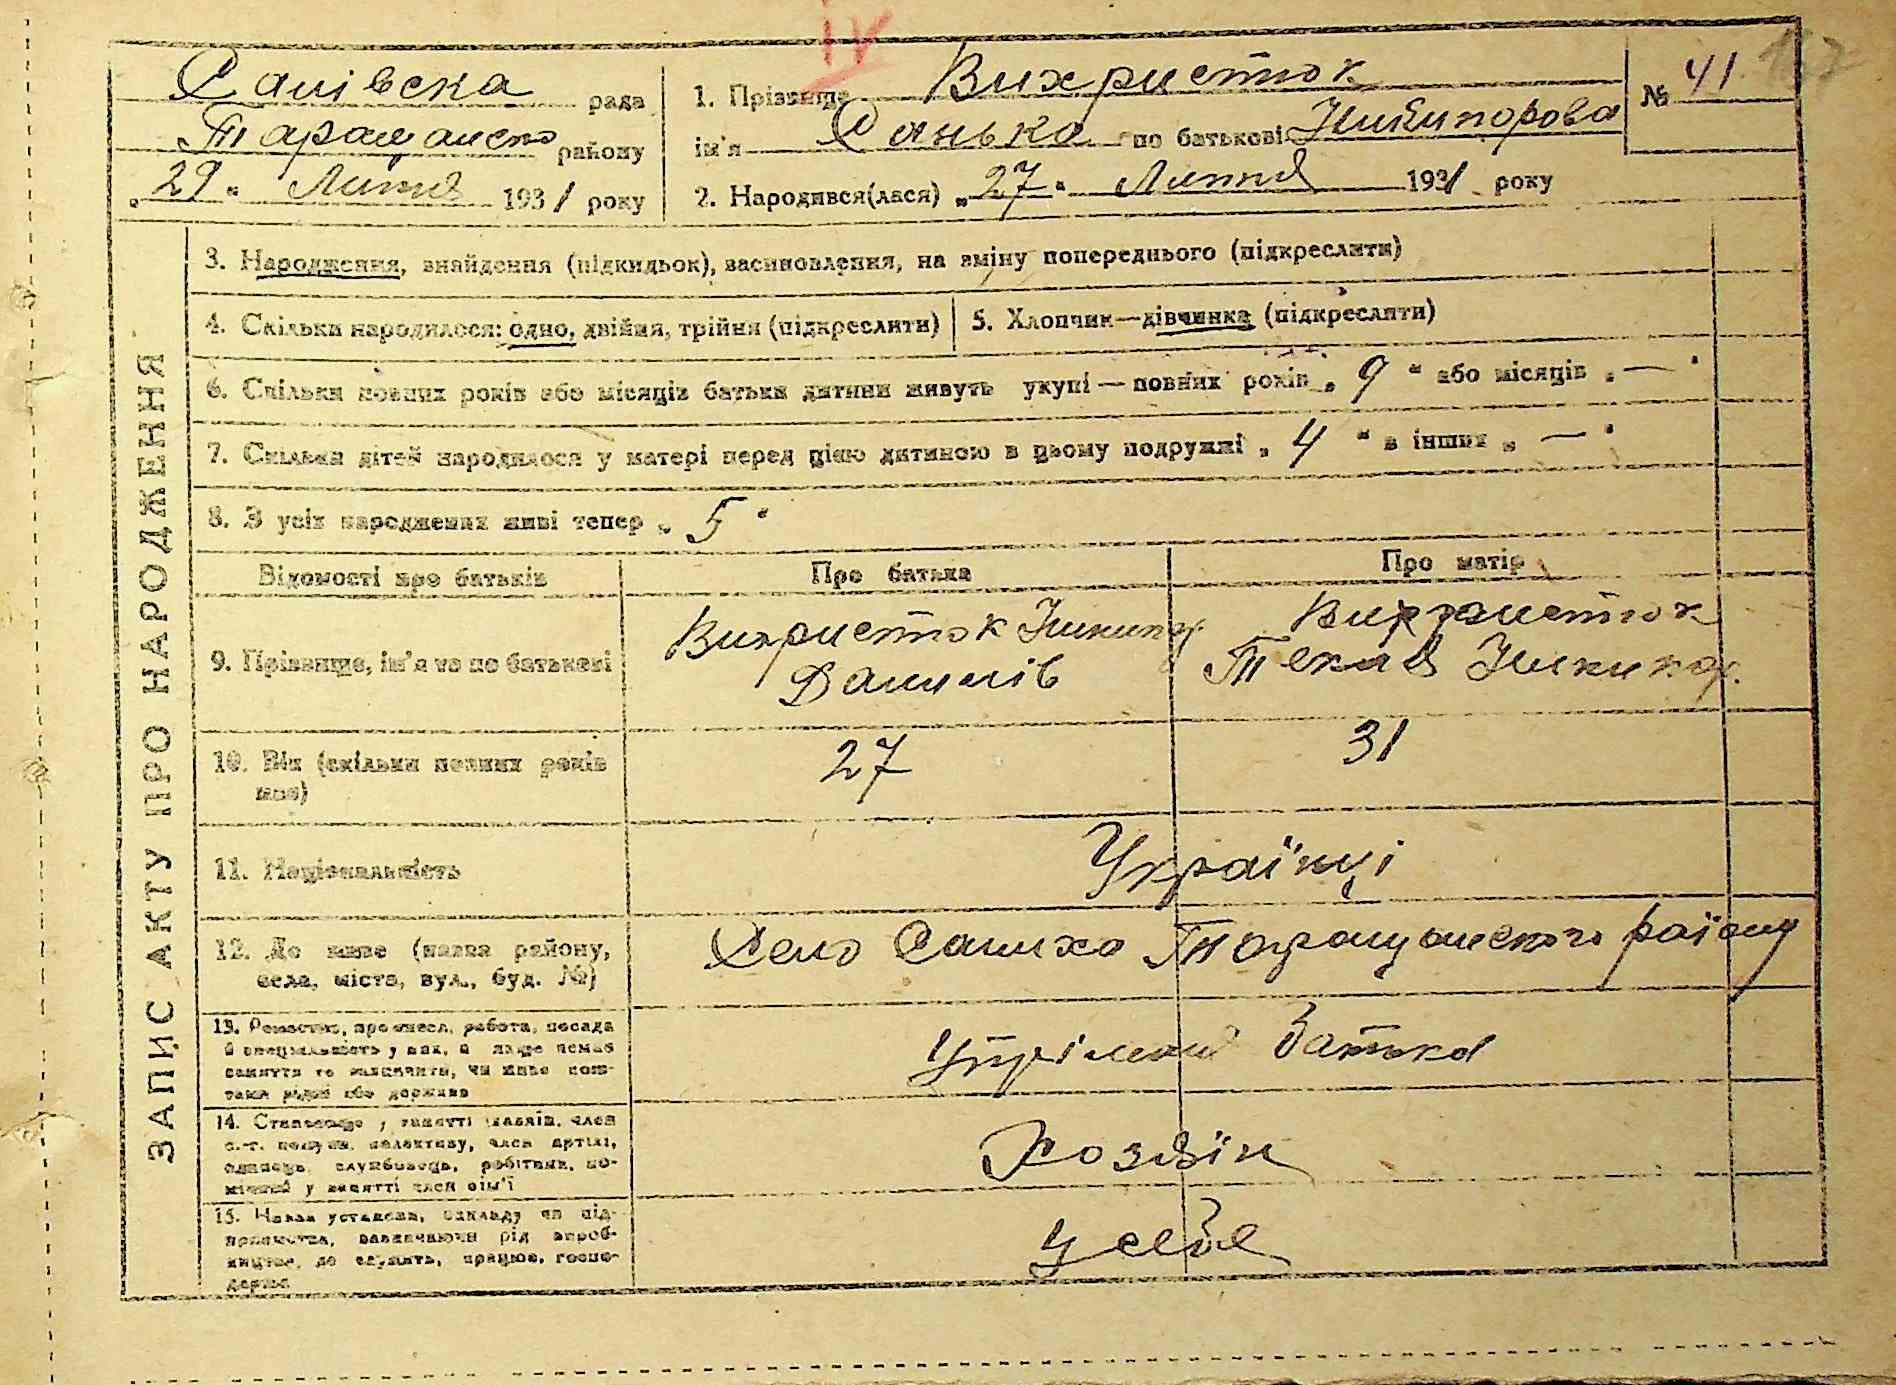 IV
Салівска рада
Таращанско району
„29“ Липня 1931 року
1. Прізвище Вихристюк
ім'я Санька по батькові Никипорова
2. Народився(лася) „27“ Липня 1931 року
№ 41
ЗАПИС АКТУ ПРО НАРОДЖЕННЯ
3. Народження, знайдення (підкидьок), засиновлення, на зміну попереднього (підкреслити)
4. Скільки народилося: одно, двійня, трійня (підкреслити)
5. Хлопчик—дівчинка (підкреслити)
6. Скільки повних років або місяців батьки дитини живуть укупі — повних років „9“ або місяців „—“
7. Скільки дітей народилося у матері перед цією дитиною в цьому подружжі „4“ в інших „—“
8. З усіх народжених живі тепер „5“
Відомості про батьків
Про батька
Про матір
9. Прізвище, ім'я та по батькові
Вихристюк Никипор
Данилів
Вихристюк
Текля Никипор.
10. Вік (скільки повних років
має)
27
31
11. Національність
Українці
12. Де живе (назва району,
села, міста, вул., буд. №)
Село Салиха Таращанского району
13. Ремество, професія, робота, посада
й спеціальність у них, а якще немає
заняття то зазначити, чи живе кош-
тами рідні або держави
батька
14. Становище у занятті: хазяїн, член
с.-г. комуни, колективу, член артілі,
одинець, службовець, робітник, по-
мічний у занятті член сім'ї
Хозяїн
15. Назва установи, закладу чи під-
приємства, зазначаючи рід вироб-
ництва, де служить, працює, госпо-
дарює
У себе